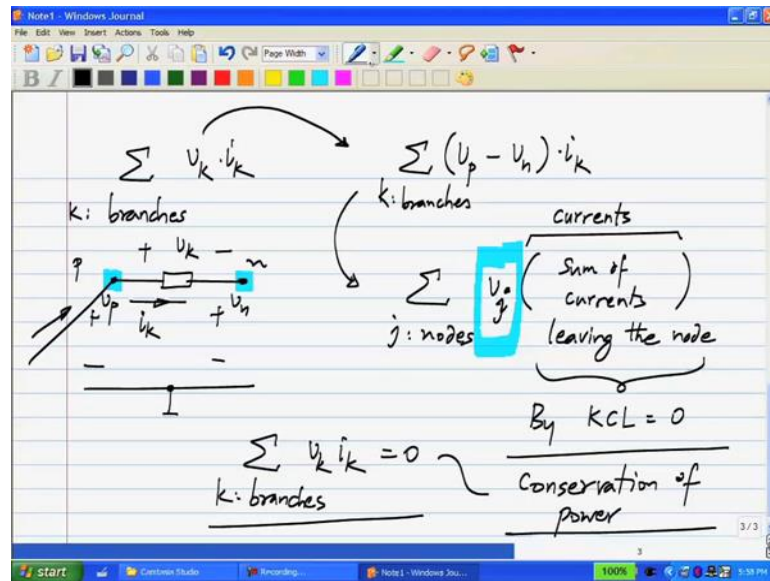 Note1 - Windows Journal
File Edit View Insert Actions Tools Help
Page Width
B I
∑ v_k · i_k
k: branches
∑ (v_p - v_n) · i_k
k: branches
+ v_k -
p
n
v_p
+
i_k
+
v_n
-
-
currents
∑ v_j (Sum of
currents
leaving the node)
j: nodes
By KCL = 0
∑ v_k i_k = 0
k: branches
Conservation of
power
3/3
3
start
Camtasia Studio
Recording...
Note1 - Windows Jou...
100%
5:58 PM